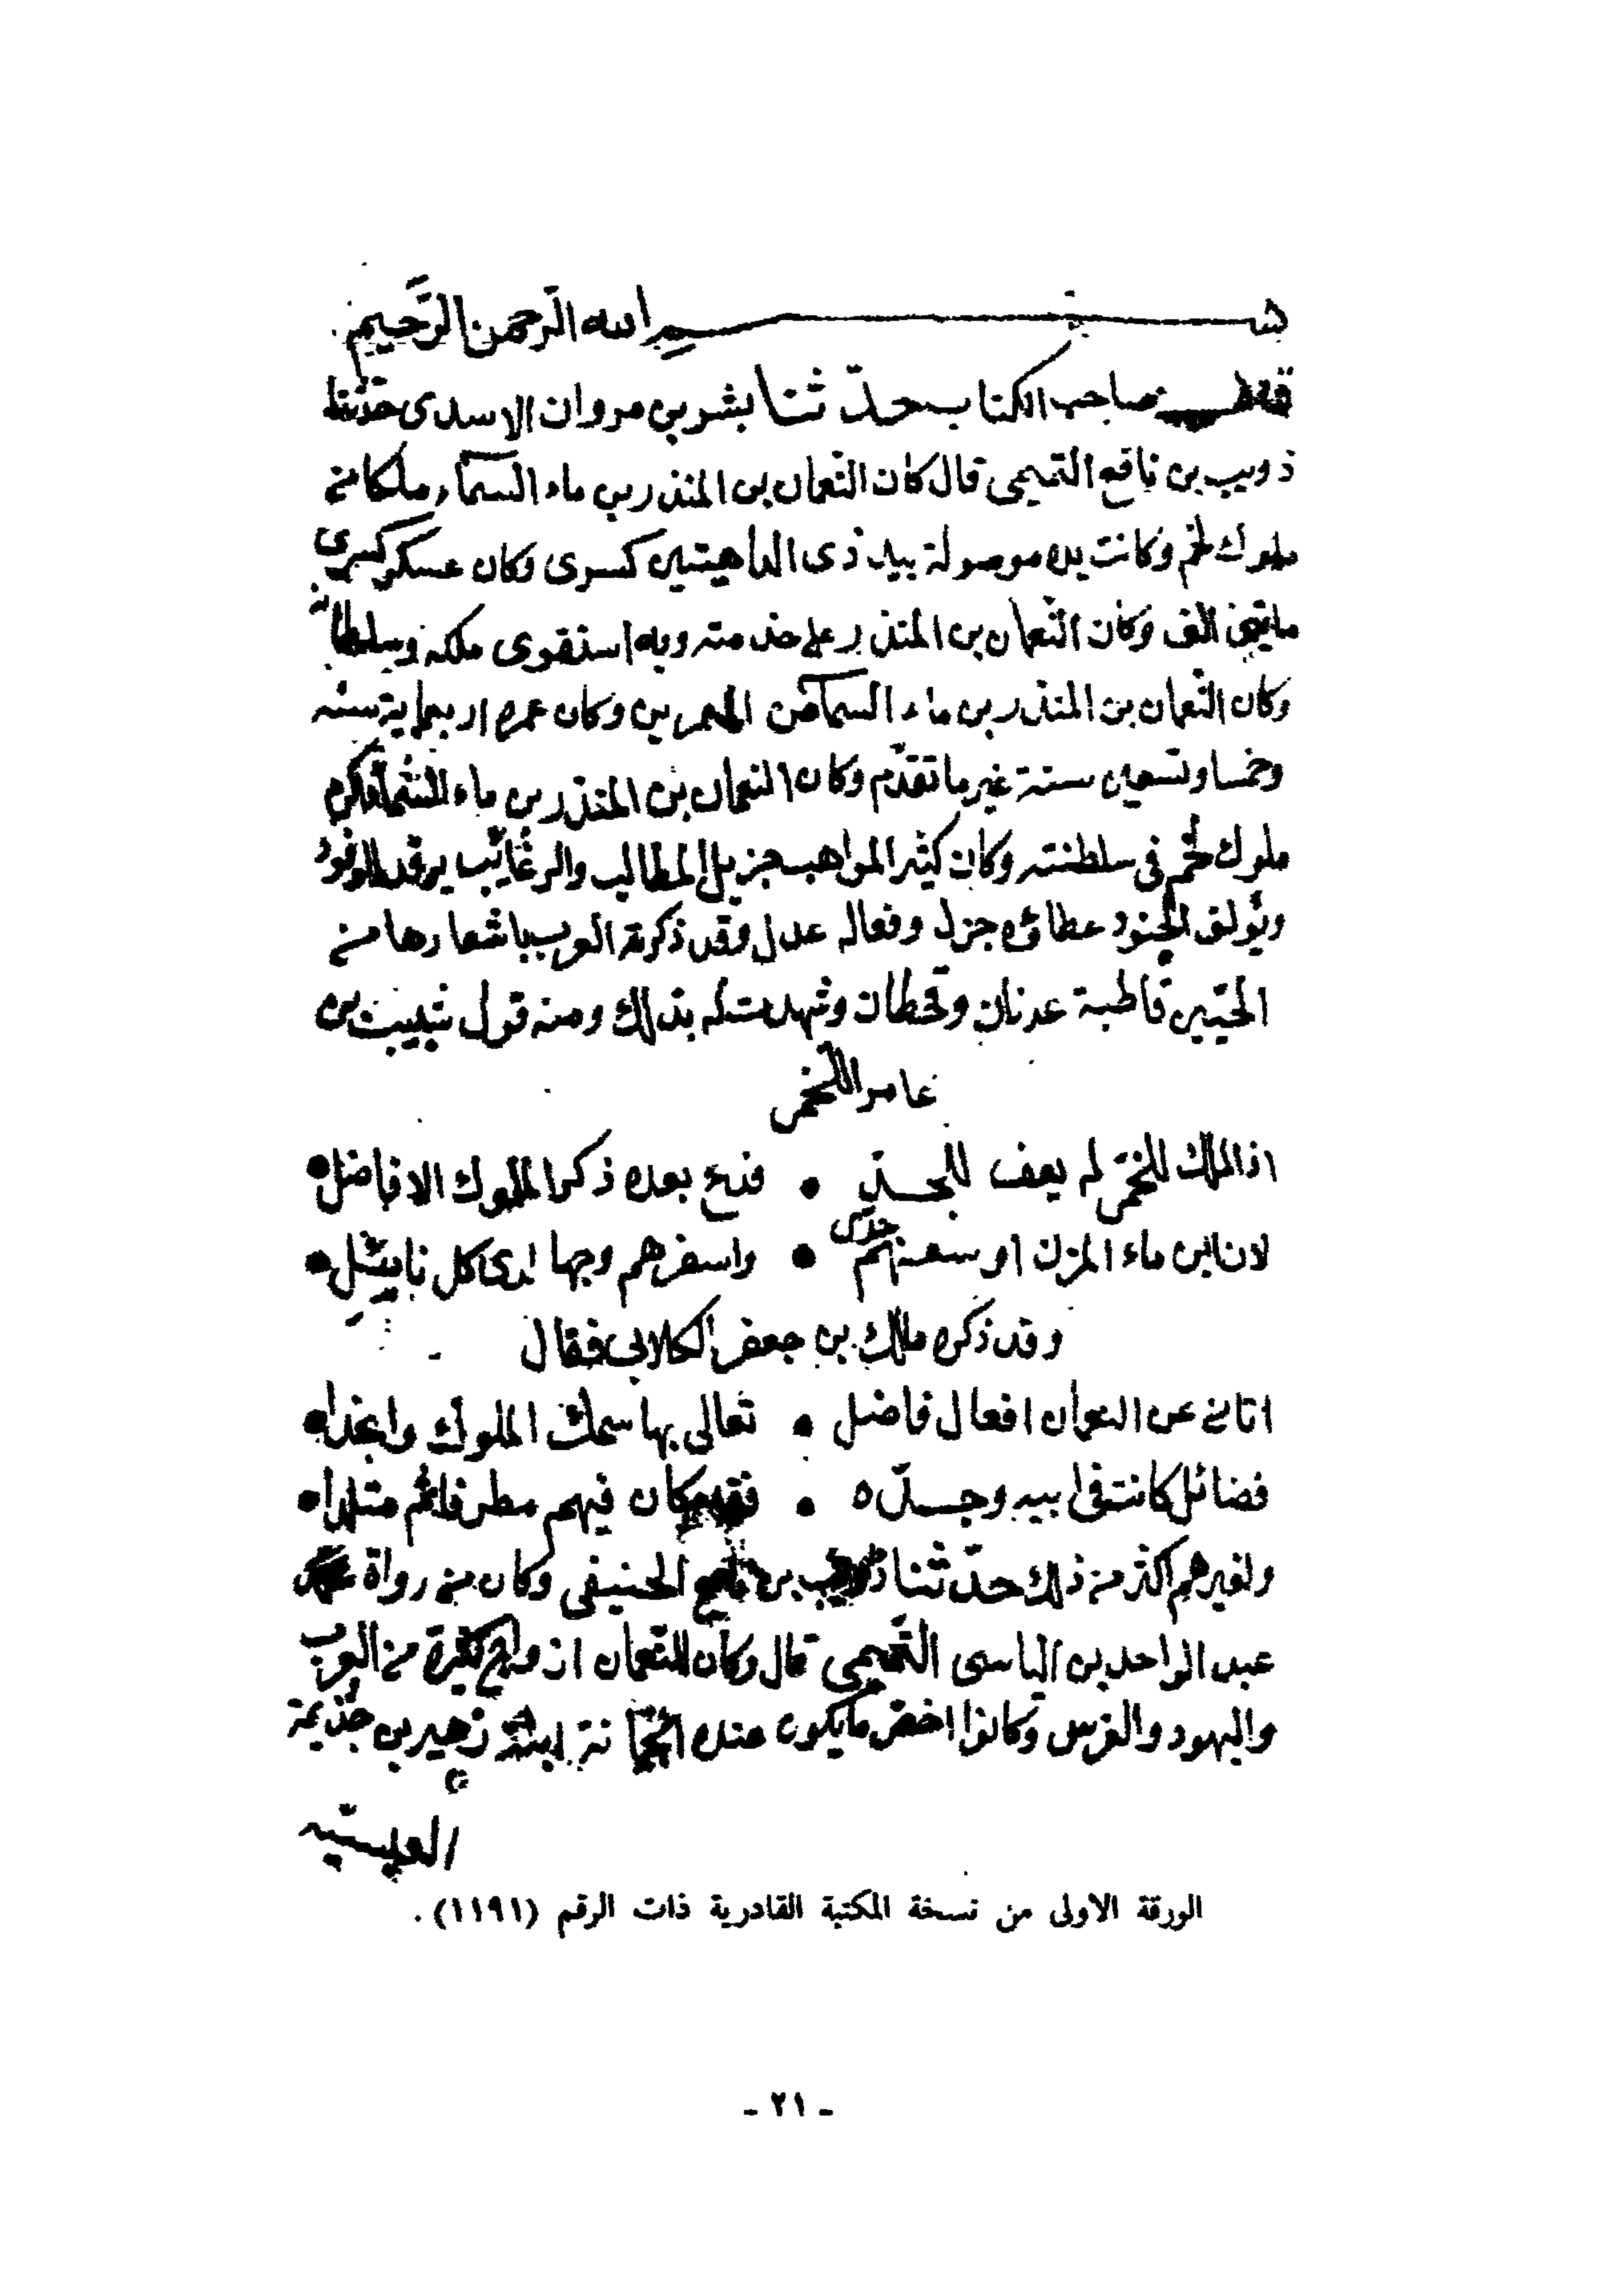 بسم الله الرحمن الرحيم
صاحب الكتاب حدّ ثنا بشر بن مروان الاسدى حدثنا
ذويب بن نافع التميمى قال كان النعمان بن المنذر بن ماء السماء ملكا من
ملوك لخم وكانت يده موصولة بيد ذى الداهيتين كسرى وكان عسكر كسرى
الف وكان النعمان بن المنذر على خدمته وبه استقوى ملكه وسلطانه
وكان النعمان بن المنذر بن ماء السماء من المعمرين وكان عمره اربعماية سنه
وخمسا وتسعين سنة غير ما تقدّم وكان النعمان بن المنذر بن ماء السماء اكرم
ملوك لخم فى سلطنته وكان كثير المواهب جزيل المطالب والرغائب يرفد الوفود
ويؤلق الجنود عطاؤه جزل وفعاله عدل وقد ذكرته العرب باشعارها من
الحيّين قاطبة عدنان وقحطان وشهدت له بذلك ومنه قول شبيب بن
عامر اللخمى
اذا الملك اللخمى لم يعف للجدّى • فدع بعده ذكر الملوك الافاضل •
لان ابن ماء المزن اوسعهم جدى • واسفرهم وجها لدى كل نايل •
وقد ذكره مالك بن جعفر الكلابى فقال
اتانى عن النعمان افعال فاضل • تعالى بها سمك الملوك وامجدا •
فضائل كانت فى ابيه وجدّه • فقد كان فيهم مطرفا ثم متلدا •
ولغيرهم اكثر من ذلك حدّ ثنا ذويب بن نافع الحنيفى وكان من رواة
عبد الواحد بن الياسى التميمى قال وكان للنعمان ازواج كثيرة من العرب
واليهود والفرس وكانوا اخص ما يكون عنده المجّانة ابنة زهير بن جذيمة
العبسيّه
الورقة الاولى من نسخة المكتبة القادرية ذات الرقم (١١٩١).
- ٢١ -